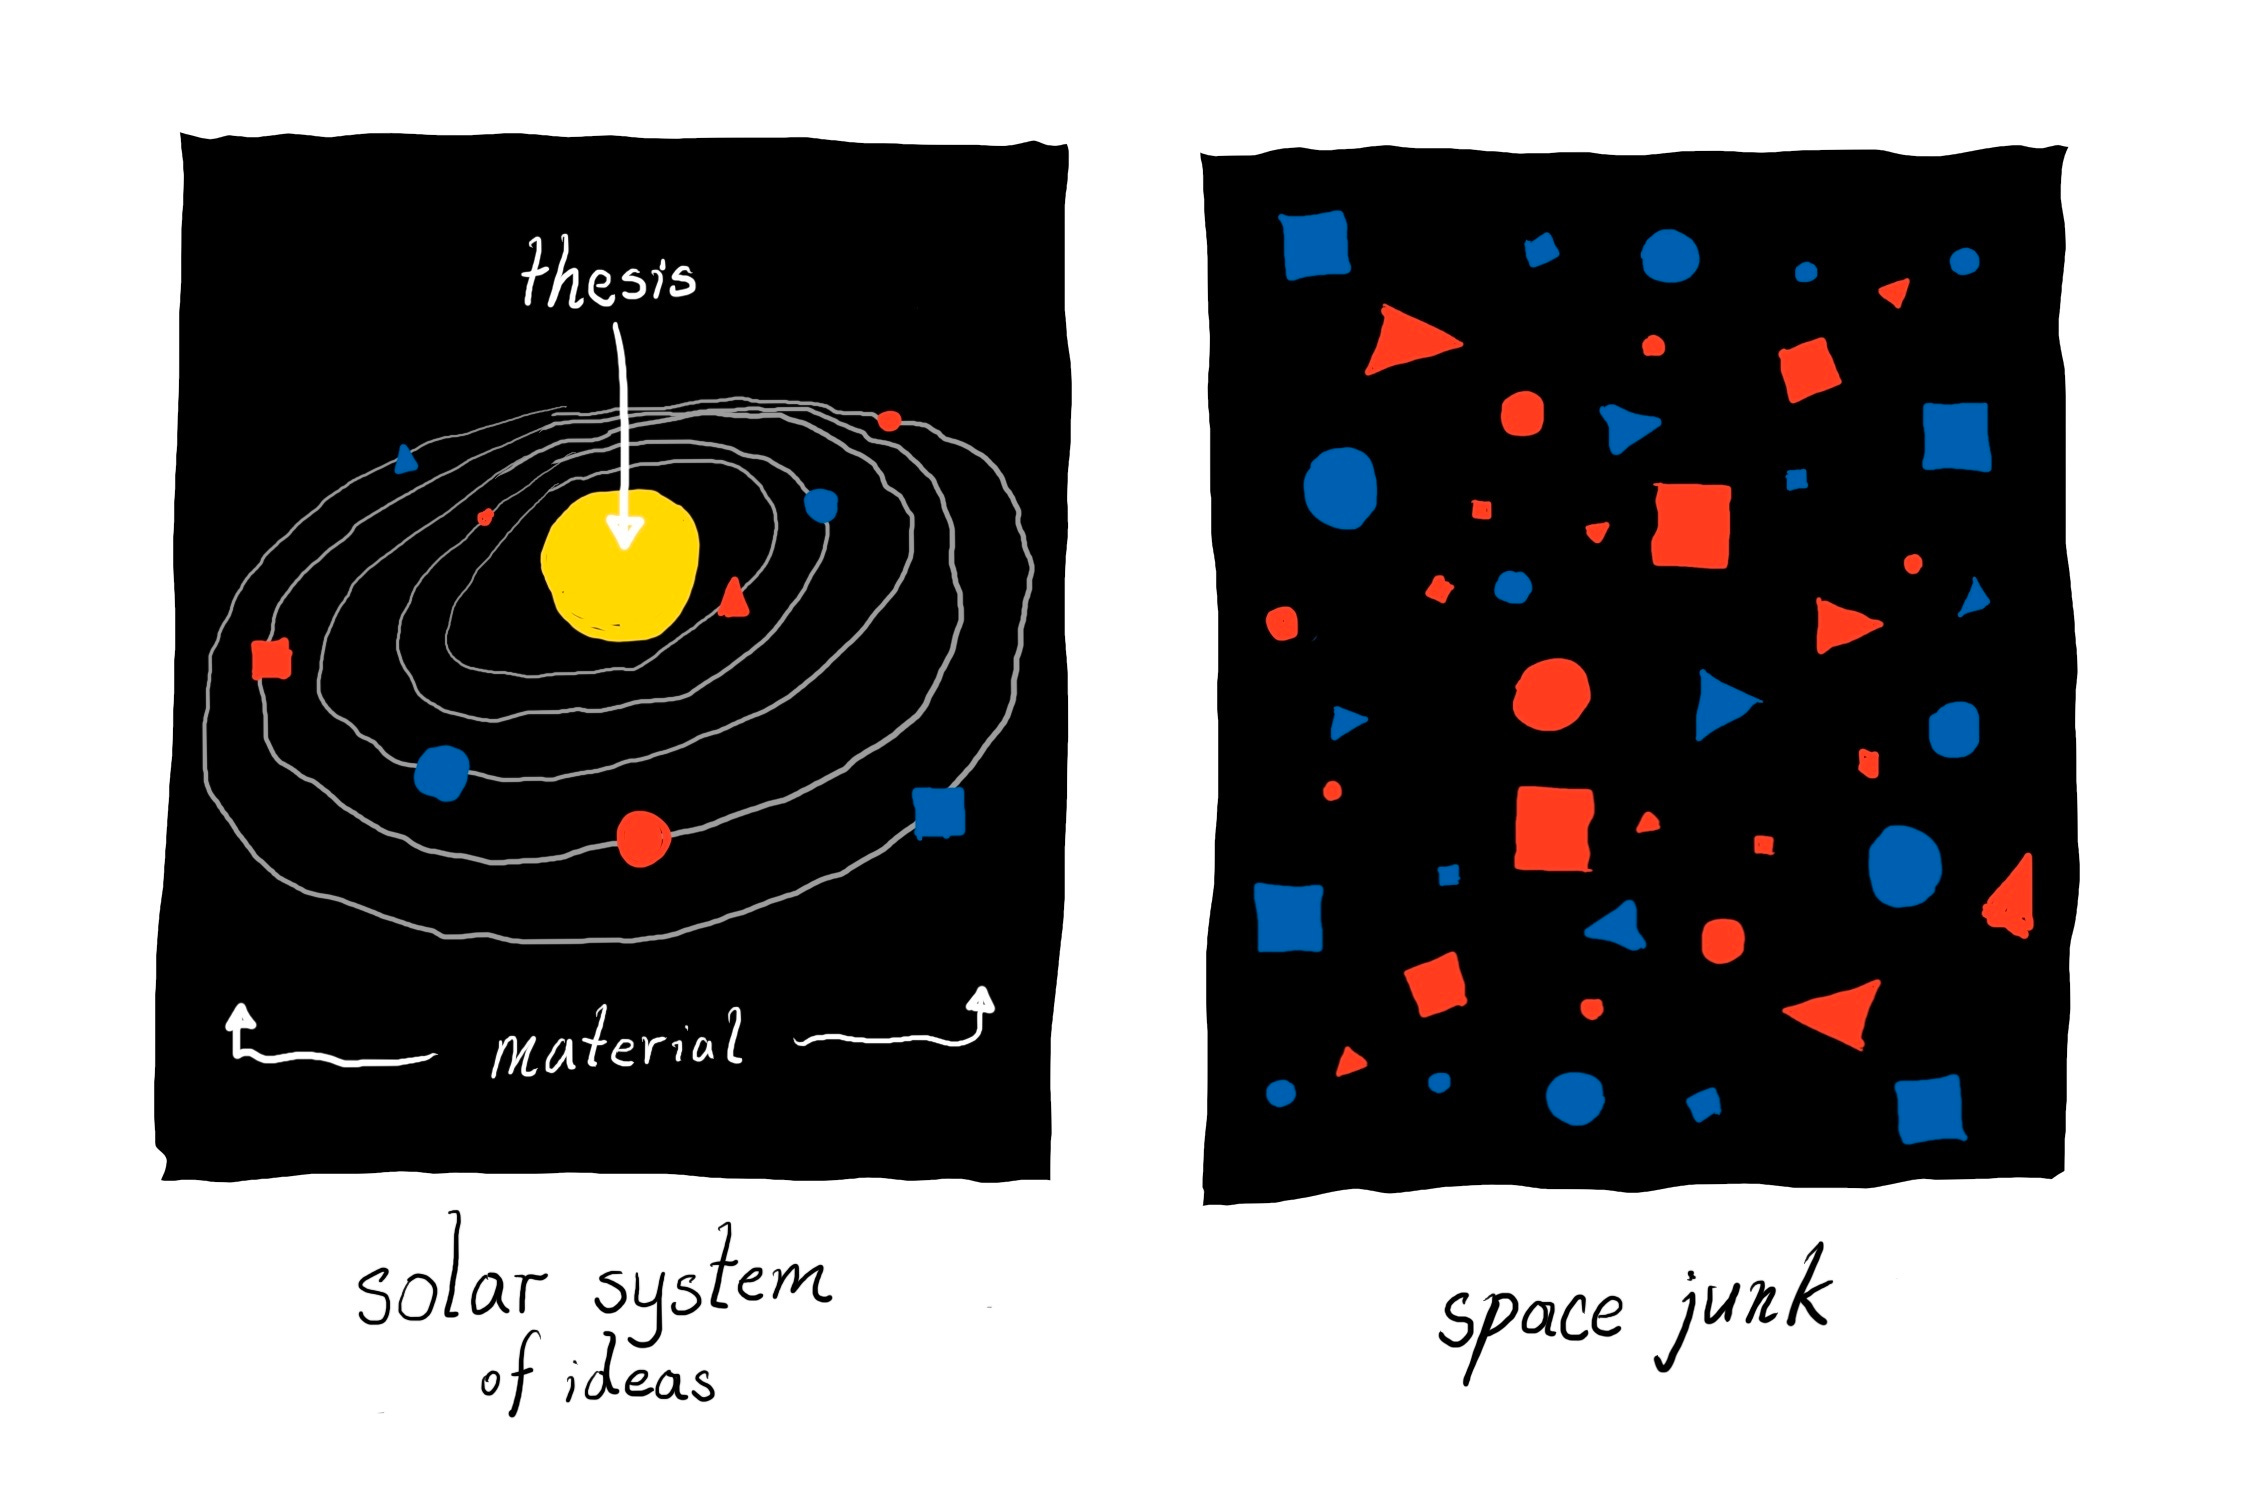 thesis
material
solar system
of ideas
space junk